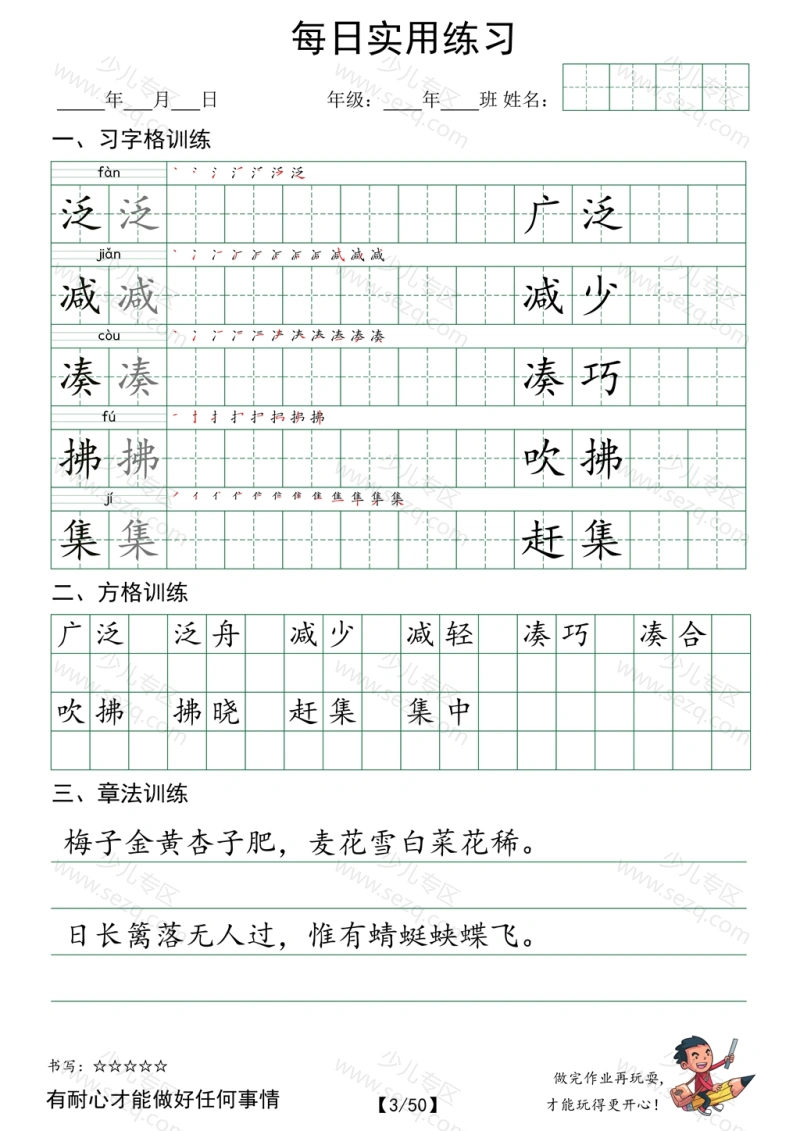 每日实用练习
_____年___月___日 年级：____年____班 姓名：
一、习字格训练
fàn
泛 泛 广 泛
jiǎn
减 减 减 少
còu
凑 凑 凑 巧
fú
拂 拂 吹 拂
jí
集 集 赶 集
二、方格训练
广 泛 泛 舟 减 少 减 轻 凑 巧 凑 合
吹 拂 拂 晓 赶 集 集 中
三、章法训练
梅子金黄杏子肥，麦花雪白菜花稀。
日长篱落无人过，惟有蜻蜓蛱蝶飞。
书写：☆☆☆☆☆
有耐心才能做好任何事情
【3/50】
做完作业再玩耍，
才能玩得更开心！
少儿专区
www.sezq.com